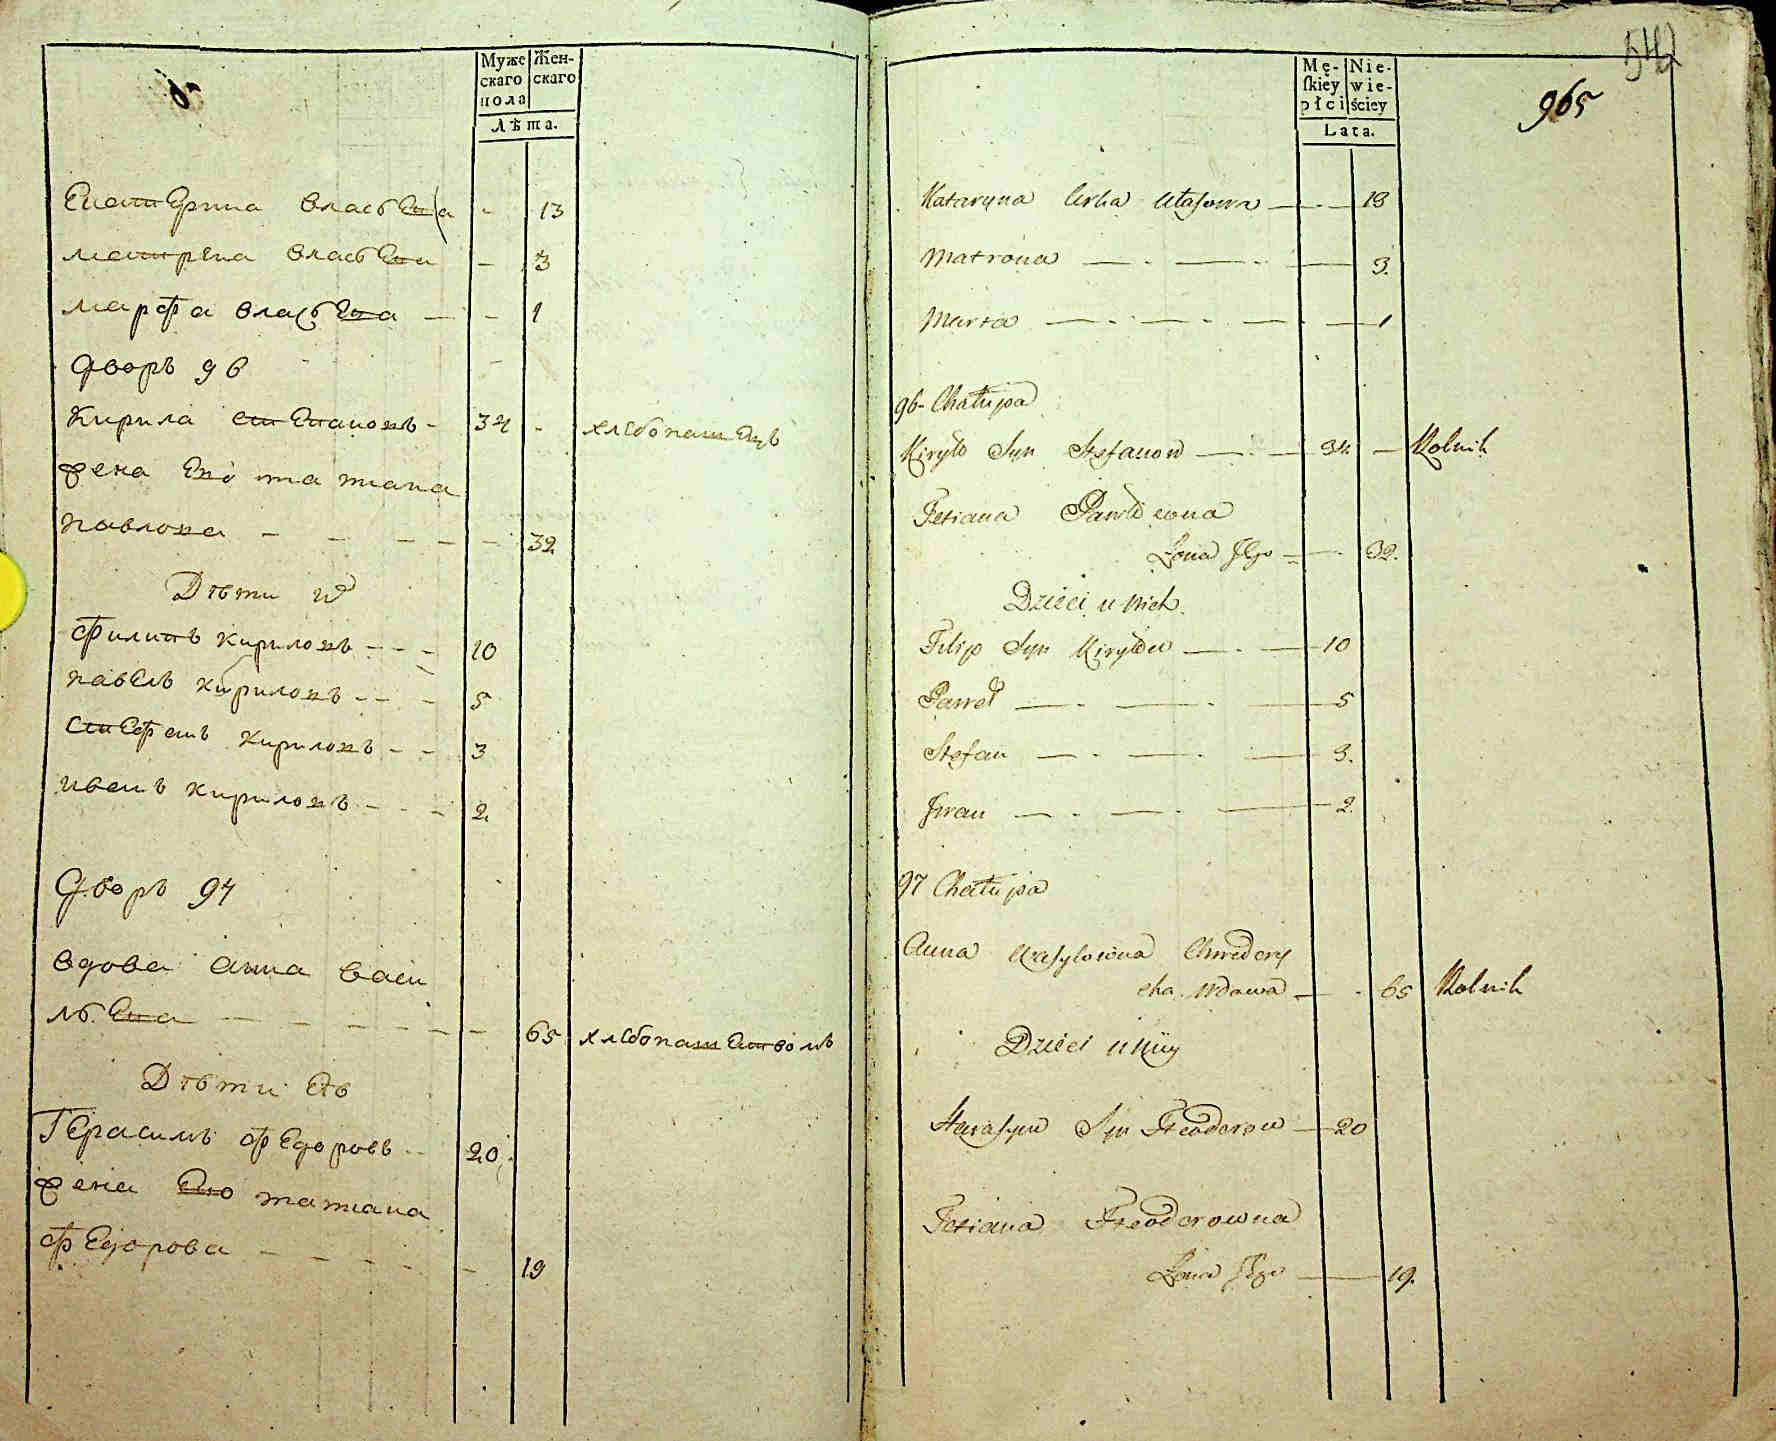 Муже
скаго
пола
Жен-
скаго
Лѣта.
Екатерина власова - 13
матрена власова - 3
марфа власова - - 1
Дворъ 96
Кирила степановъ - 34 - хлебопашецъ
жена Его татиана
павлова - - - - - 32
Дѣти их
филипъ кириловъ - - - 10
павелъ кириловъ - - - 5
стефанъ кириловъ - - 3
иванъ кириловъ - - - 2
Дворъ 97
вдова анна васи
льева - - - - - - 65 хлебопашеством
Дѣти Её
Герасимъ федоровъ - 20
жена Его татиана
федорова - - - - - 19
Mę-
ſkiey
płci
Nie-
wie-
ściey
Lata.
542
965
Kataryna Corka Ułasowa — 13
Matrona — 3.
Marta — 1
96 - Chałupa
Kiryło Syn Stefanow — 34 — Rolnik
Tetiana Pawłowna
Żona Jego — 32.
Dzieci u Nich
Filip Syn Kiryłow — 10
Paweł — 5
Stefan — 3.
Iwan — 2.
97 Chałupa
Anna Wasylowna Chwedory
cha Wdowa — 65 Rolnik
Dzieci u Niiy
Harasym Syn Fteodorow — 20
Tetiana Fteodorowna
Żona Jego — 19.